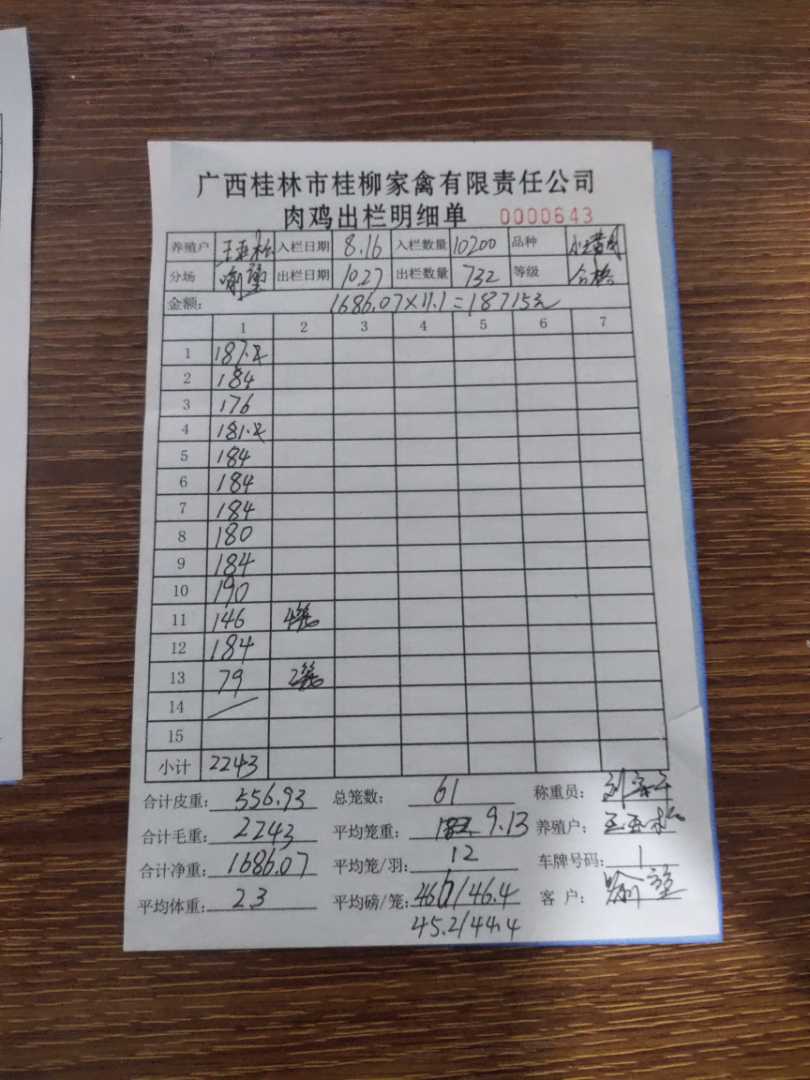 广西桂林市桂柳家禽有限责任公司
肉鸡出栏明细单 0000643
养殖户 王亚松 入栏日期 8.16 入栏数量 10200 品种
分场 喻望 出栏日期 10.27 出栏数量 732 等级 合格
金额: 1686.07×11.1=18715元
1 2 3 4 5 6 7
1
2 184
3 176
4
5 184
6 184
7 184
8 180
9 184
10 190
11 146 4笼
12 184
13 79 2笼
14
15
小计 2243
合计皮重: 556.93 总笼数: 61 称重员:
合计毛重: 2243 平均笼重: 9.13 养殖户: 王亚松
合计净重: 1686.07 平均笼/羽: 12 车牌号码: 1
平均体重: 2.3 平均磅/笼: /46.4 客户: 喻望
45.2/44.4